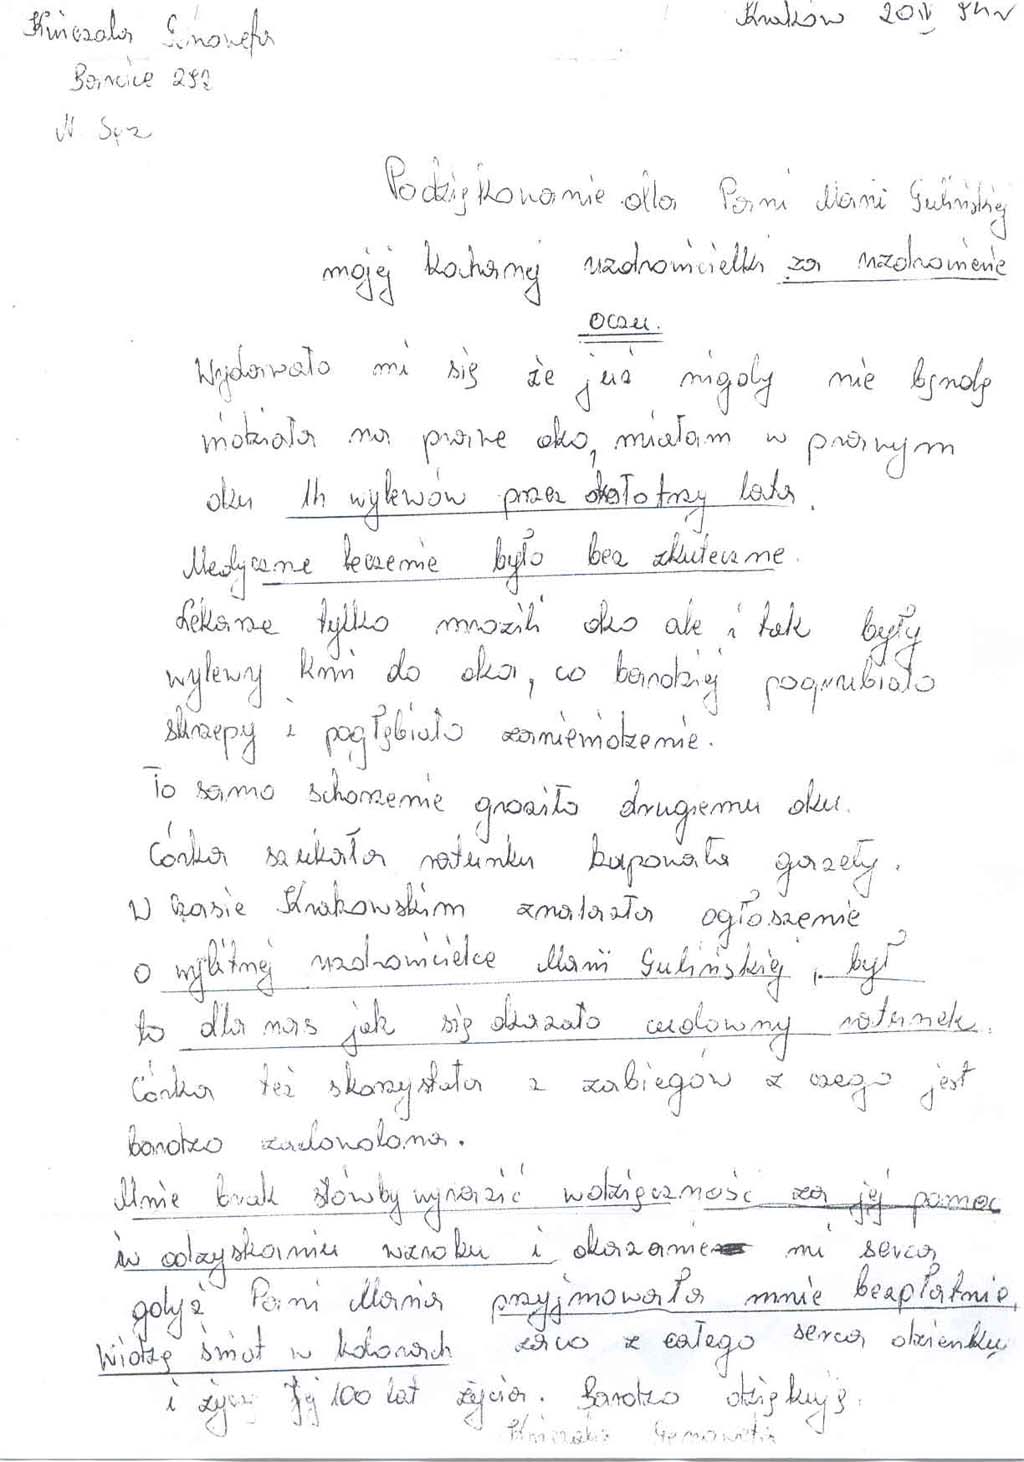 Kraków 20 IV 94r
Kuczala Genowefa
Barcice 292
N Sącz
Podziękowanie dla Pani Marii Gulińskiej
mojej kochanej uzdrowicielki za uzdrowienie
oczu.
Wydawało mi się że już nigdy nie będę
widziała na prawe oko, miałam w prawym
oku 14 wylewów przez około trzy lata.
Medyczne leczenie było bez zkuteczne.
Lekarze tylko mrozili oko ale i tak były
wylewy krwi do oka, co bardziej pogrubiało
skrzepy i pogłębiało zaniewidzenie.
To samo schorzenie groziło drugiemu oku.
Córka szukała ratunku kupowała gazety.
W Czasie Krakowskim znalazła ogłoszenie
o wybitnej uzdrowicielce Marii Gulińskiej, był
to dla nas jak się okazało cudowny ratunek.
Córka też skorzystała z zabiegów z czego jest
bardzo zadowolona.
Mnie brak słów by wyrazić wdzięczność za jej pomoc
w odzyskaniu wzroku i okazanie mi serca
gdyż Pani Maria przyjmowała mnie bezpłatnie.
Widzę świat w kolorach za co z całego serca dzienkuję
i życzę Jej 100 lat życia. Bardzo dziękuję.
Genowefa